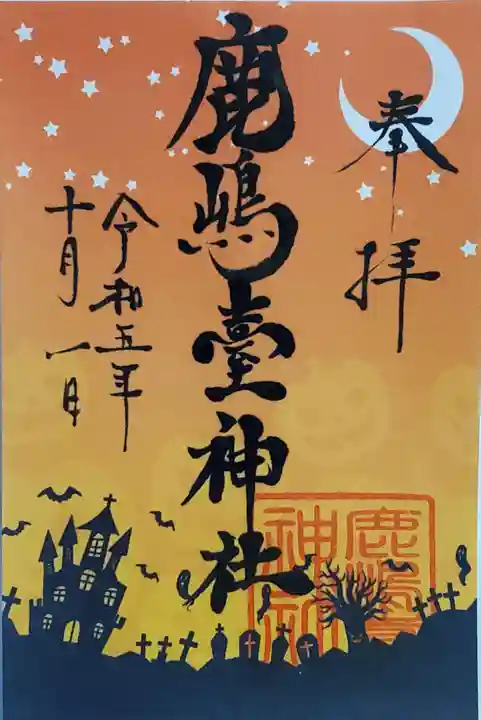 奉拝
鹿嶋臺神社
令和五年
十月一日
鹿嶋臺
神社